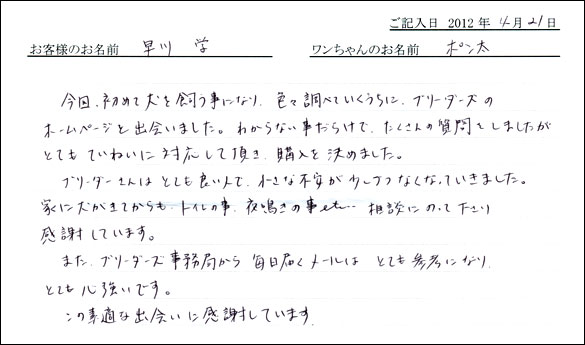 ご記入日 2012年 4月21日
お客様のお名前 早川 学 ワンちゃんのお名前 ポン太
今回、初めて犬を飼う事になり、色々調べていくうちに、ブリーダーズの
ホームページと出会いました。わからない事だらけで、たくさんの質問をしましたが
とてもていねいに対応して頂き、購入を決めました。
ブリーダーさんはとても良い人で、小さな不安が少しづつなくなっていきました。
家に犬がきてからも、トイレの事、夜鳴きの事etc… 相談にのって下さり
感謝しています。
また、ブリーダーズ事務局から毎日届くメールは とても参考になり、
とても心強いです。
この素適な出会いに感謝しています。